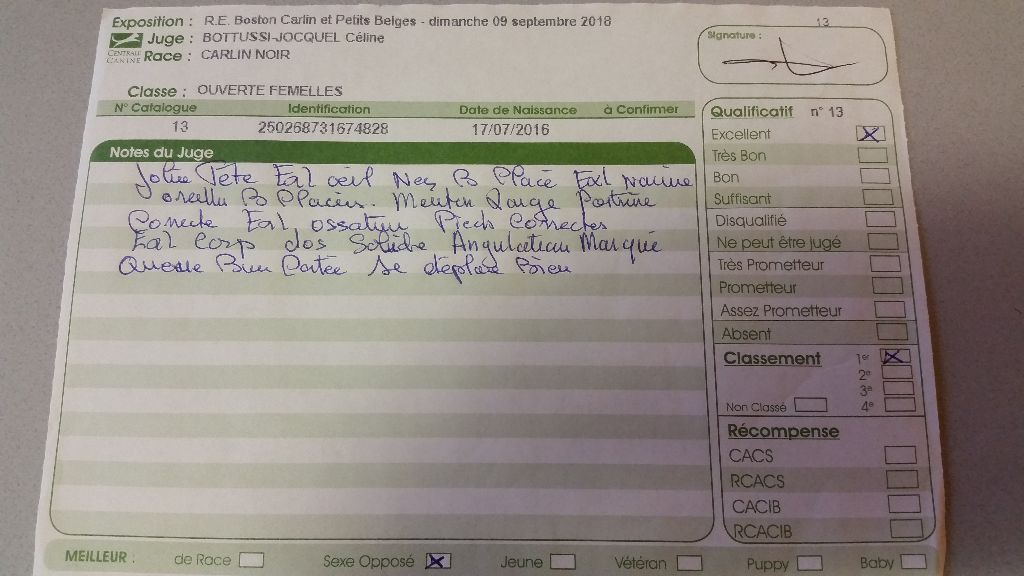 Exposition : R.E. Boston Carlin et Petits Belges - dimanche 09 septembre 2018
13
Juge : BOTTUSSI-JOCQUEL Céline
CENTRALE CANINE
Race : CARLIN NOIR
Signature :
Classe : OUVERTE FEMELLES
N° Catalogue Identification Date de Naissance à Confirmer
13 250268731674828 17/07/2016
Notes du Juge
Jolie Tête Exl oeil Nez B Placé Exl narine
oreilles B Placées. Menton Large Poitrine
Correcte Exl ossature Pieds Correctes
Exl Corp dos Solide Angulation Marquée
Queue Bien Portée Se déplace Bien
Qualificatif n° 13
Excellent X
Très Bon
Bon
Suffisant
Disqualifié
Ne peut être jugé
Très Prometteur
Prometteur
Assez Prometteur
Absent
Classement 1er X
2e
3e
Non Classé 4e
Récompense
CACS
RCACS
CACIB
RCACIB
MEILLEUR : de Race Sexe Opposé X Jeune Vétéran Puppy Baby